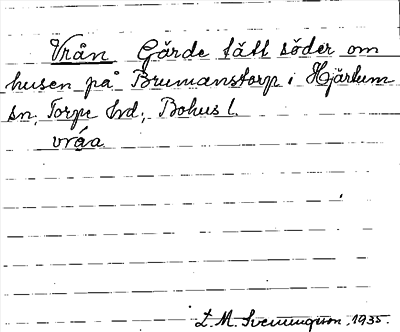 Vrån Gärde tätt söder om
husen på Brumanstorp i Hjärtum
sn, Torpe hd, Bohus l.
vráa
L. M. Svenungsson, 1935.